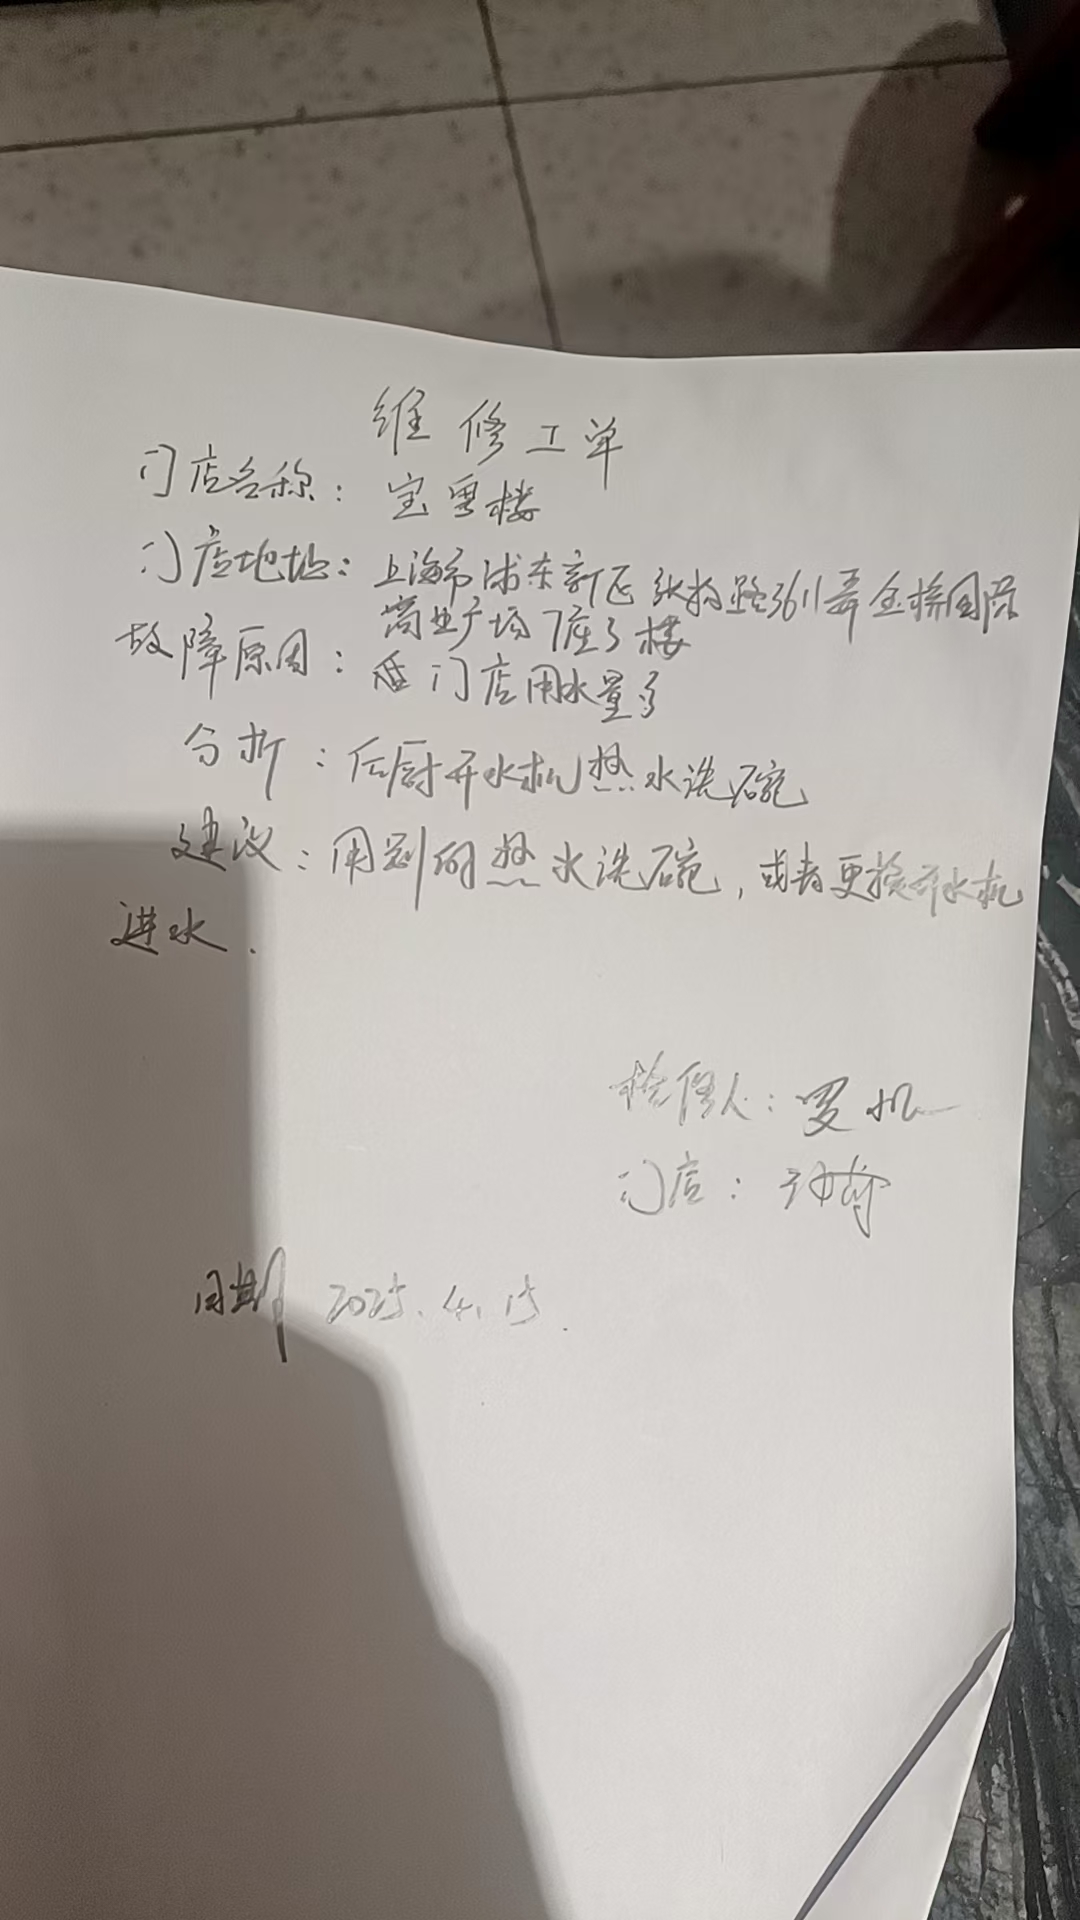 维修工单
门店名称：宝粤楼
门店地址：上海市浦东新区张杨路3611弄金桥国际
商业广场7座3楼
故障原因：查门店用水量多
分析：后厨开水机热水洗碗
建议：用别的热水洗碗，或者更换开水机
进水.
检修人：罗机
门店：
日期 2025.4.15.